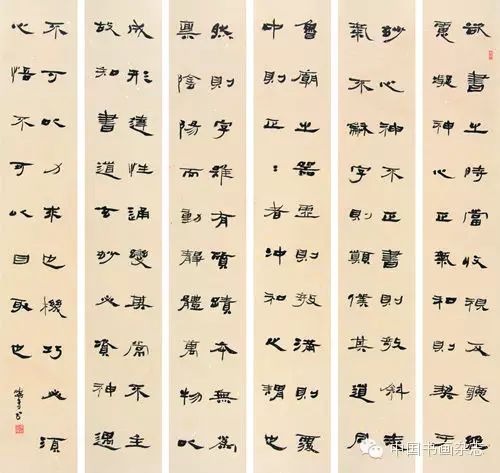 欲書之時當收視反聽絕
慮凝神心正氣和則契于
妙心神不正書則欹斜志
氣不和字則顛仆其道同
魯廟之器虛則欹滿則覆
中則正：者沖和之謂也
然則字雖有質蹟本無為
稟陰陽而動靜體萬物以
成形達性通變其常不主
故知書道玄妙必資神遇
不可以力求也機巧必須
心悟不可以目取也
中国书画杂志